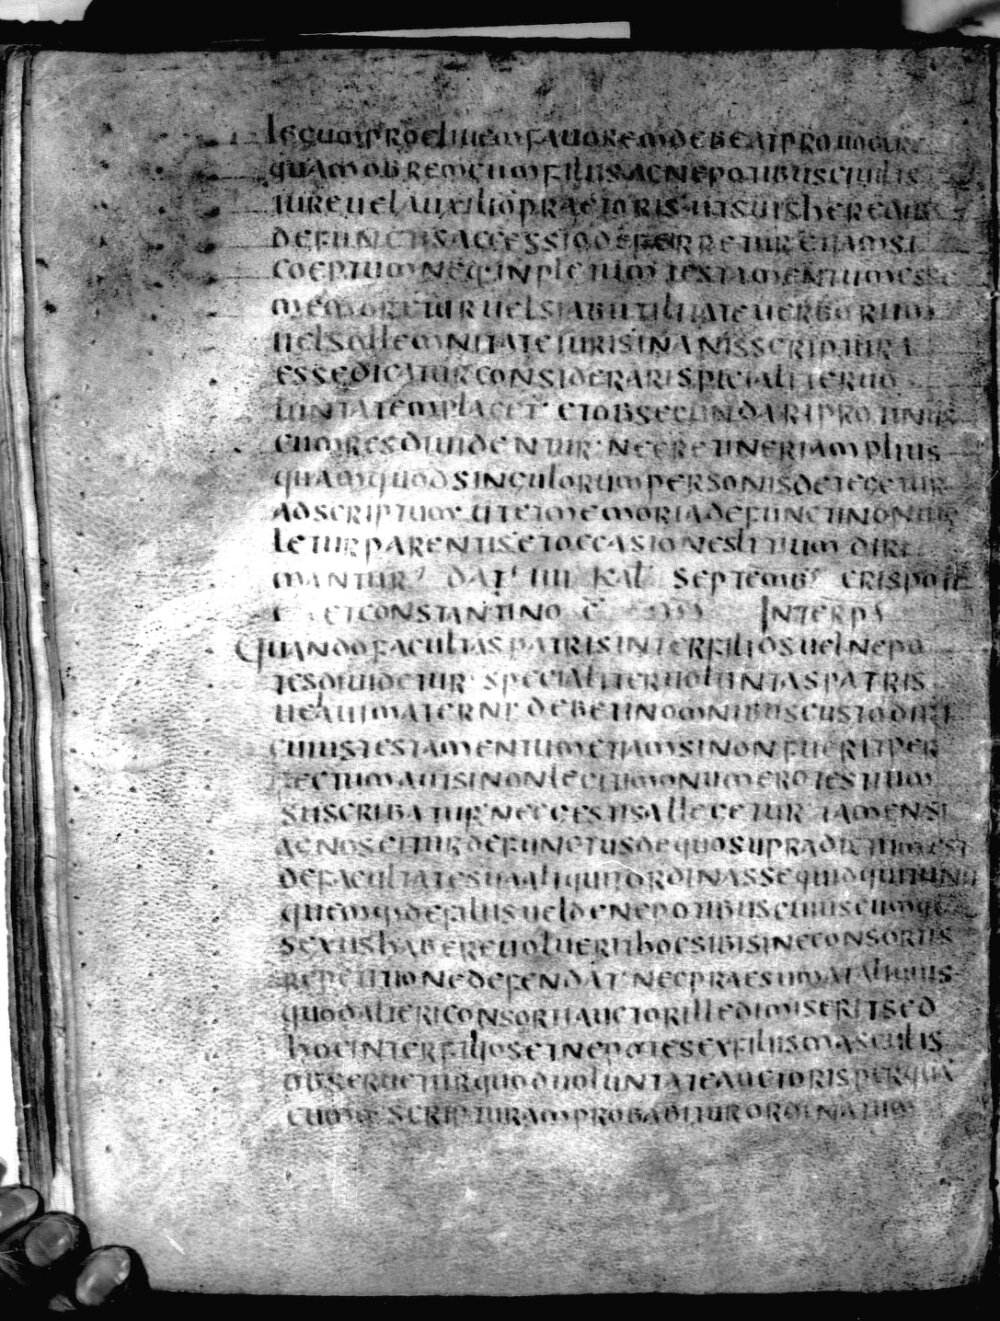 legum pro eiu em favorem debeat provocare
quamobrem cum filiis ac nepotibus civilis
iure vel auxilio praetoris ut suis heredib
defunctis accessio deferretur etiamsi
coeptum neq inpletum testamentum esse
memoretur vel si ab utilitate verborum
vel sollemnitate iuris inanis scriptura
esse dicatur considerari specialiter vo
luntatem placet et ob secundari protinus
cum res dividentur nec retineri amplius
quam quod singulorum personis detegetur
adscriptum ut et memoria defuncti non vio
letur parentis et occasiones litium diri
mantur dat IIII kal septemb crispo II
et constantino c INTERP
Quando facultas patris inter filios vel nepo
tes dividetur specialiter voluntas patris
vel aut materne debet in omnibus custodiri
cuius testamentum etiamsi non fuerit per
fectum aut si non legitimo numero testium
suscribatur nec gestis allegetur tamen si
agnoscitur defunctus de quo supra dictum est
de facultate sua aliquit ordinasse quidquit unu
quemq de filiis vel de nepotibus cuiuscumque
sexus habere voluerit hoc sibi sine consortis
repetitione defendat nec praesumat alicuius
quod alteri consorti auctor ille dimiserit sed
hoc inter filios et nepotes ex filiis masculis
observetur quod voluntate auctoris per qua
cumq scripturam probabitur ordinatum